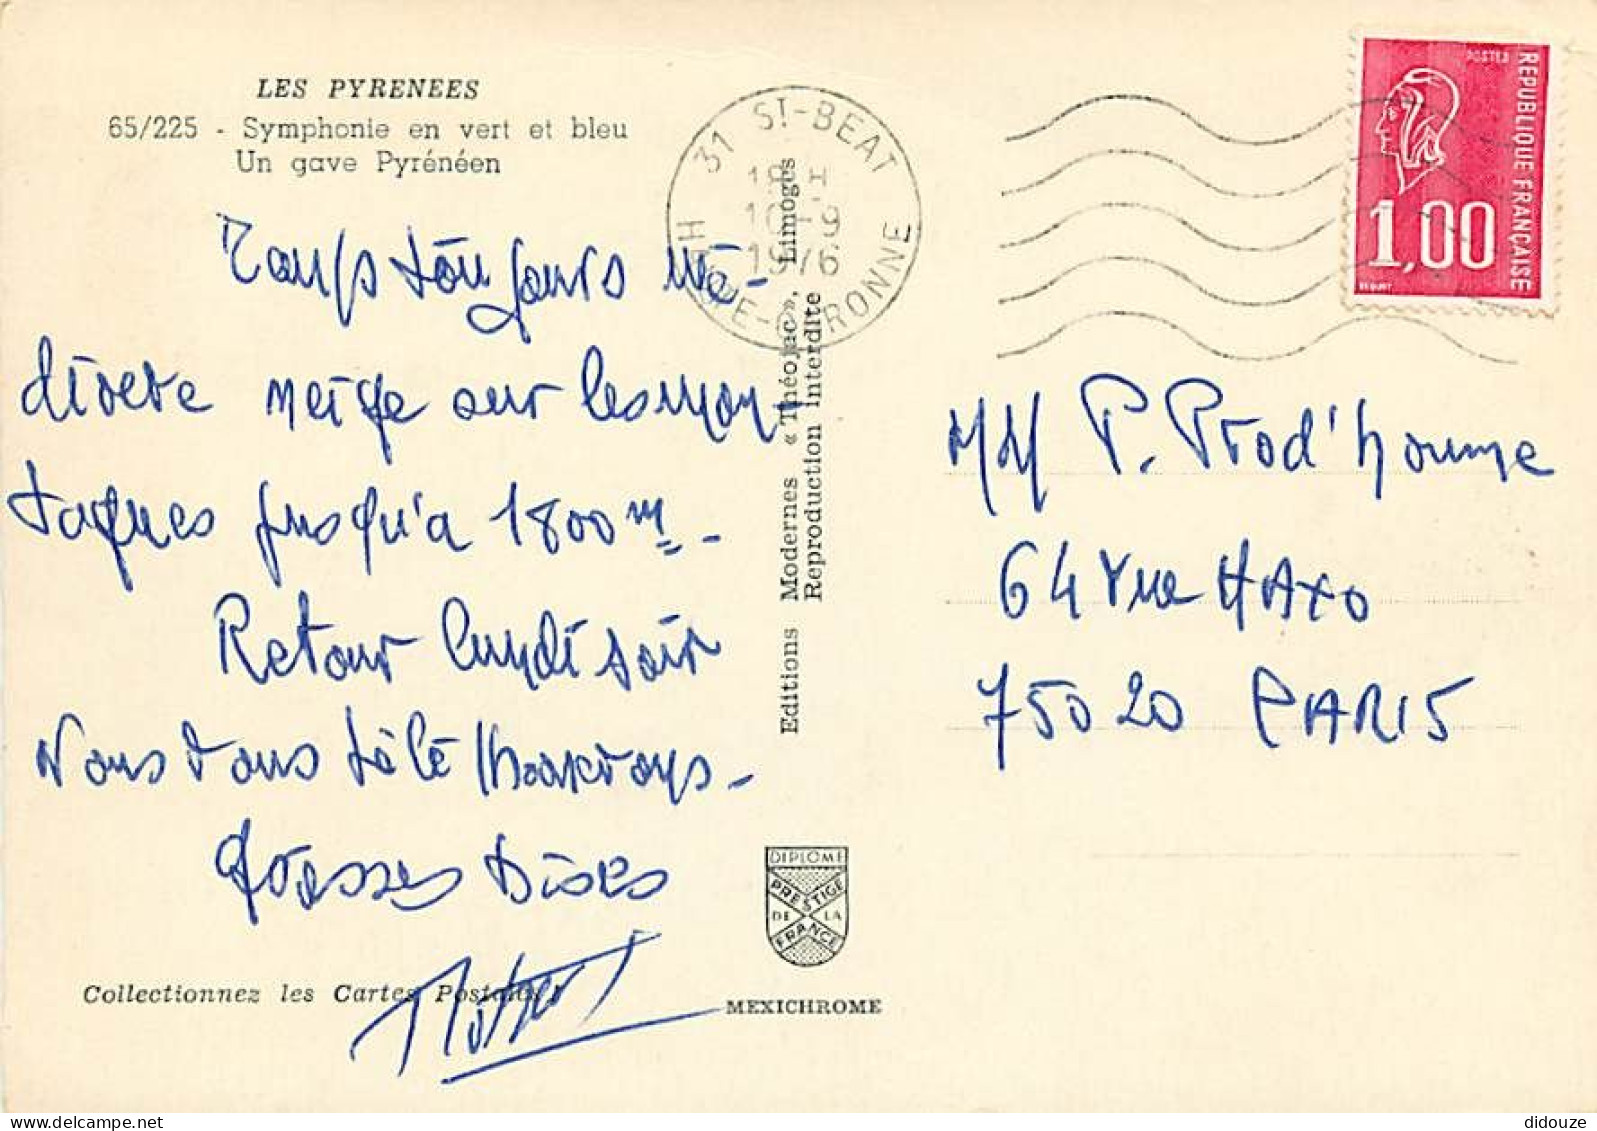 LES PYRENEES
65/225 - Symphonie en vert et bleu
Un gave Pyrénéen
Temps toujours mé-
diocre neige sur les mon
tagnes jusqu'a 1800m -
Retour lundi soir
Nous vous télé
Grosses Bises
Collectionnez les Cartes Postales !
Editions Modernes « Théojac », Limoges
Reproduction interdite
DIPLOME
PRESTIGE
DE LA
FRANCE
MEXICHROME
31 ST-BEAT
18 H
10-9
1976
HAUTE-GARONNE
POSTES
REPUBLIQUE FRANÇAISE
1,00
BEQUET
MM P. Prod'homme
64 rue HAXO
75020 PARIS
didouze